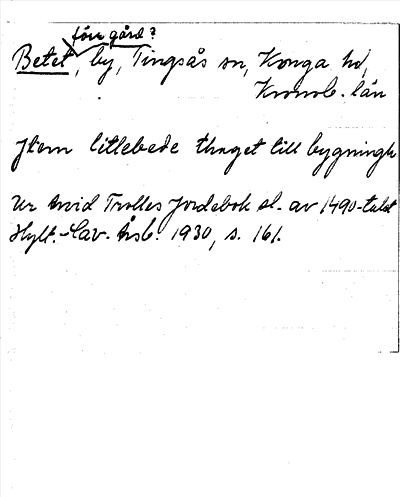 förr gård?
Betet, by, Tingsås sn, Konga hd,
Kronob. län
Jtem litlebede thaget till bygningh
Ur Arvid Trolles Jordebok sl. av 1490-talet
Hylt.-Cav. Årsb. 1930, s. 161.